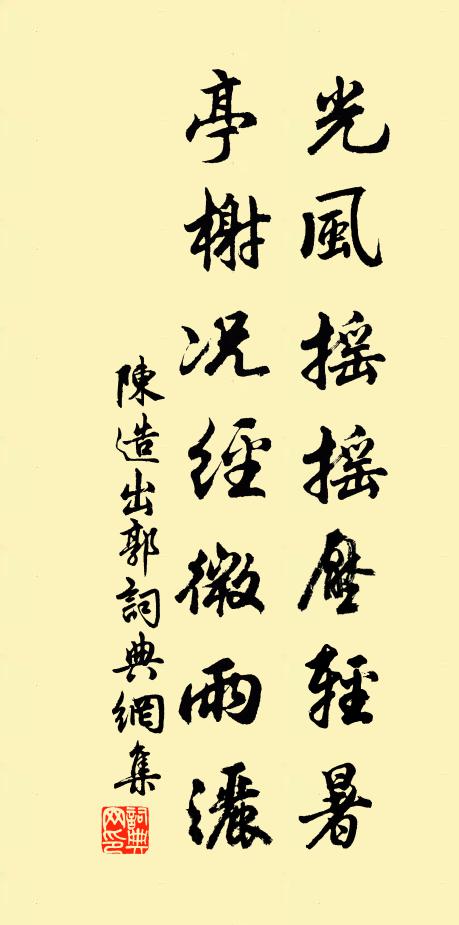 光風搖搖壓輕暑
亭榭況經微雨灑
陳造出郭詞典網集
詞典網印